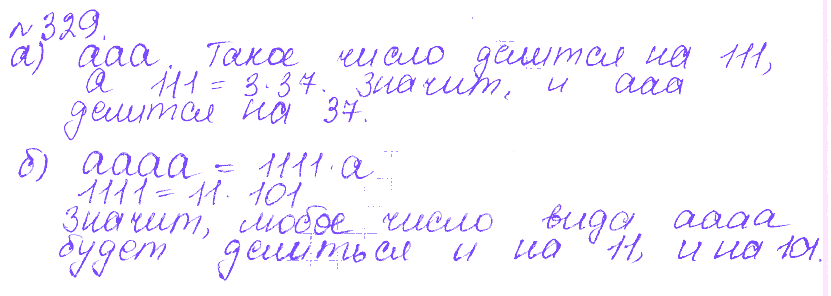 №329.
а) ааа. Такое число делится на 111,
а 111 = 3·37. Значит, и ааа
делится на 37.
б) аааа = 1111·а
1111 = 11·101
Значит, любое число вида аааа
будет делиться и на 11, и на 101.